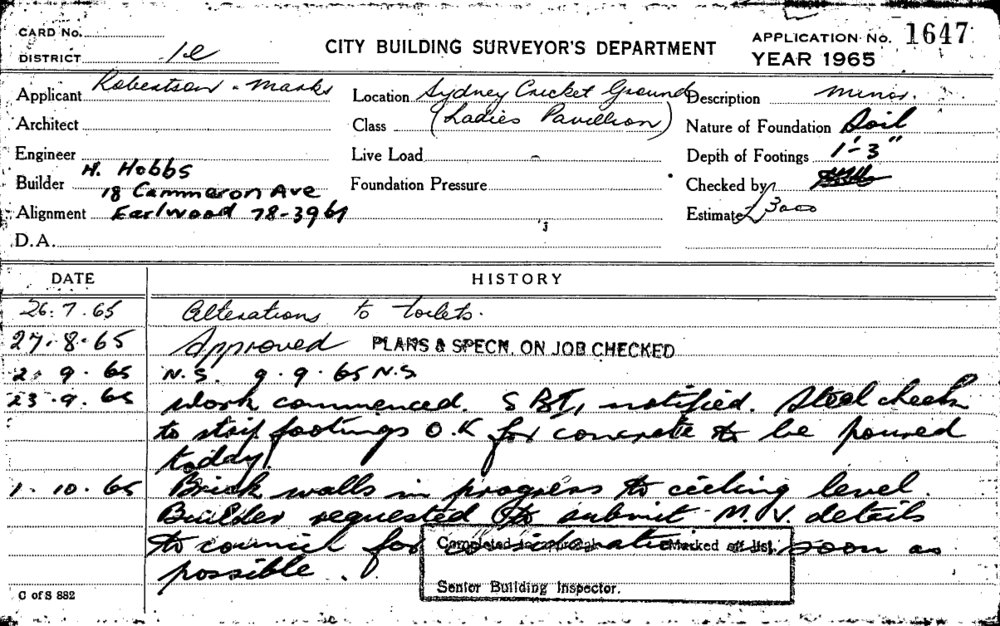 CARD No.
DISTRICT 1e
CITY BUILDING SURVEYOR'S DEPARTMENT
APPLICATION No. 1647
YEAR 1965
Applicant Robertson & Marks
Location Sydney Cricket Ground
Description minor.
Architect
Class (Ladies Pavillion)
Nature of Foundation Soil
Engineer
Live Load -
Depth of Footings 1'-3"
Builder H. Hobbs
18 Cammeron Ave
Foundation Pressure
Checked by
Alignment Earlwood 78-3961
Estimate £3000
D.A.
DATE HISTORY
26.7.65 Alterations to toilets.
27.8.65 Approved PLANS & SPECN. ON JOB CHECKED
2.9.65 N.S. 9.9.65 N.S.
23.9.65 Work commenced. notified. Steel check
to strip footings O.K for concrete to be poured
today.
1.10.65 Brick walls in progress to ceiling level.
Builder requested to submit M.V. details
to council for consideration soon as
possible.
Completed Marked off list.
Senior Building Inspector.
C of S 882